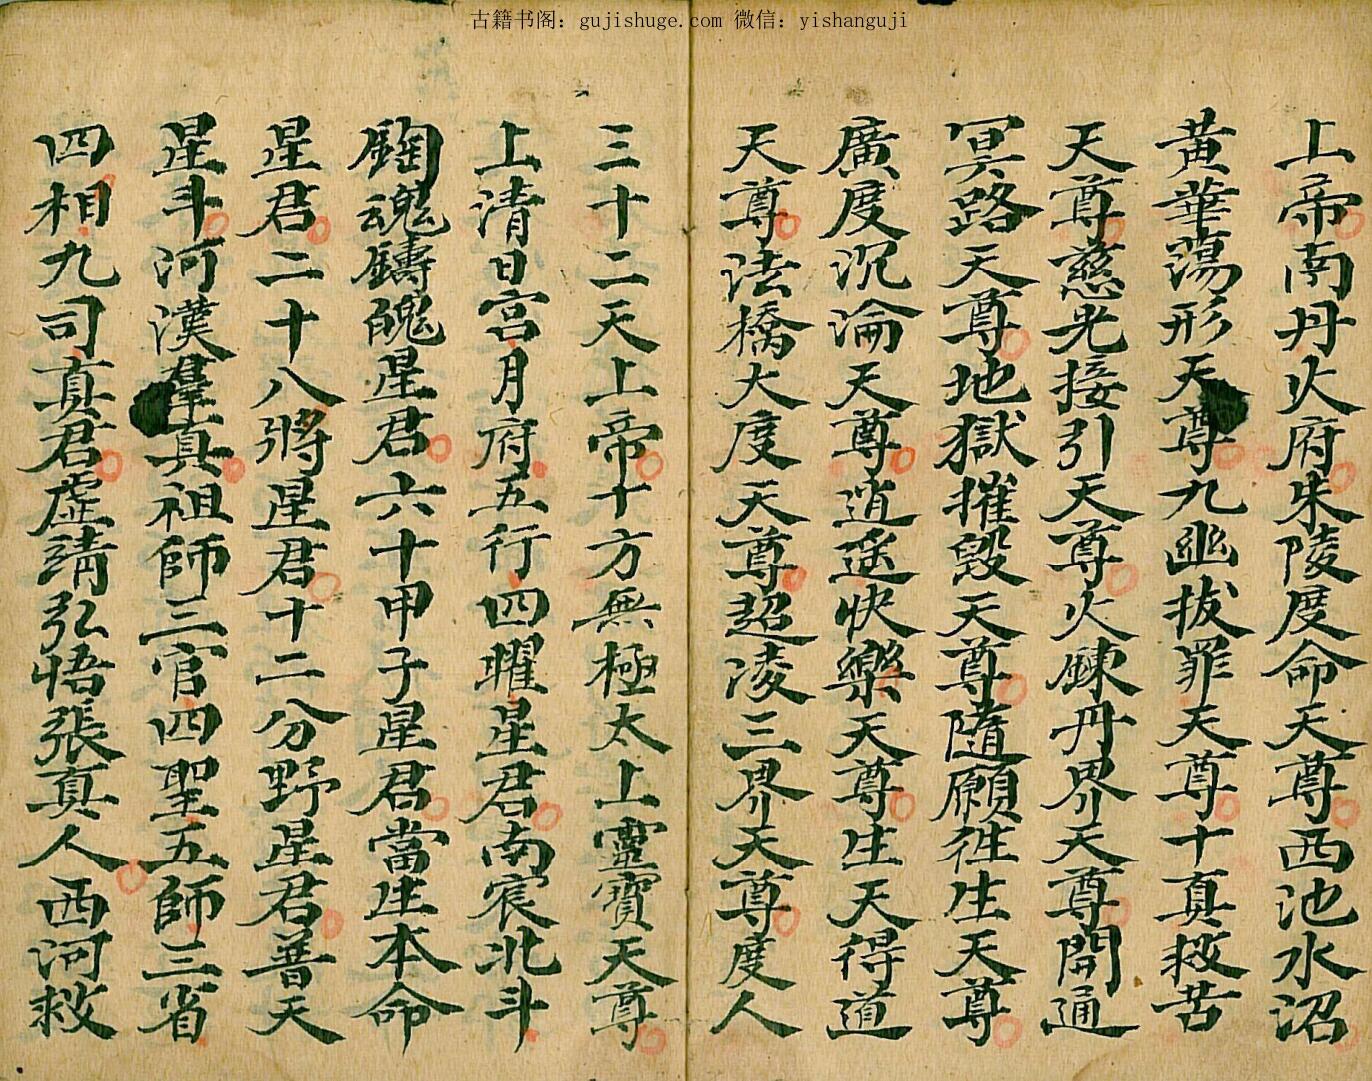 古籍书阁：gujishuge.com 微信：yishanguji
上帝南丹火府朱陵度命天尊西池水沼
黃華蕩形天尊九幽拔罪天尊十真救苦
天尊慈光接引天尊火鍊丹界天尊開通
冥路天尊地獄摧毀天尊隨願徃生天尊
廣度沉淪天尊逍遥快樂天尊生天得道
天尊法橋大度天尊超凌三界天尊度人
三十二天上帝十方無極太上靈寶天尊
上清日宮月府五行四曜星君南宸北斗
陶魂鑄魄星君六十甲子星君當生本命
星君二十八將星君十二分野星君普天
星斗河漢羣真祖師三官四聖五師三省
四相九司真君虛靖弘悟張真人西河救